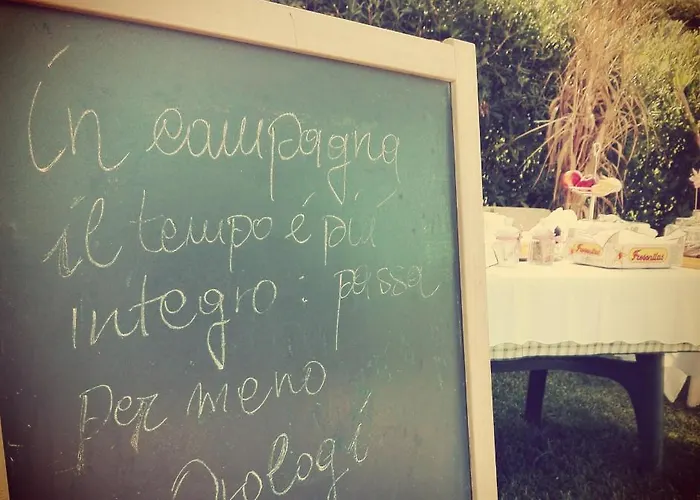 In campagna
il tempo é piú
integro: passa
per meno
orologi
Fresorillas